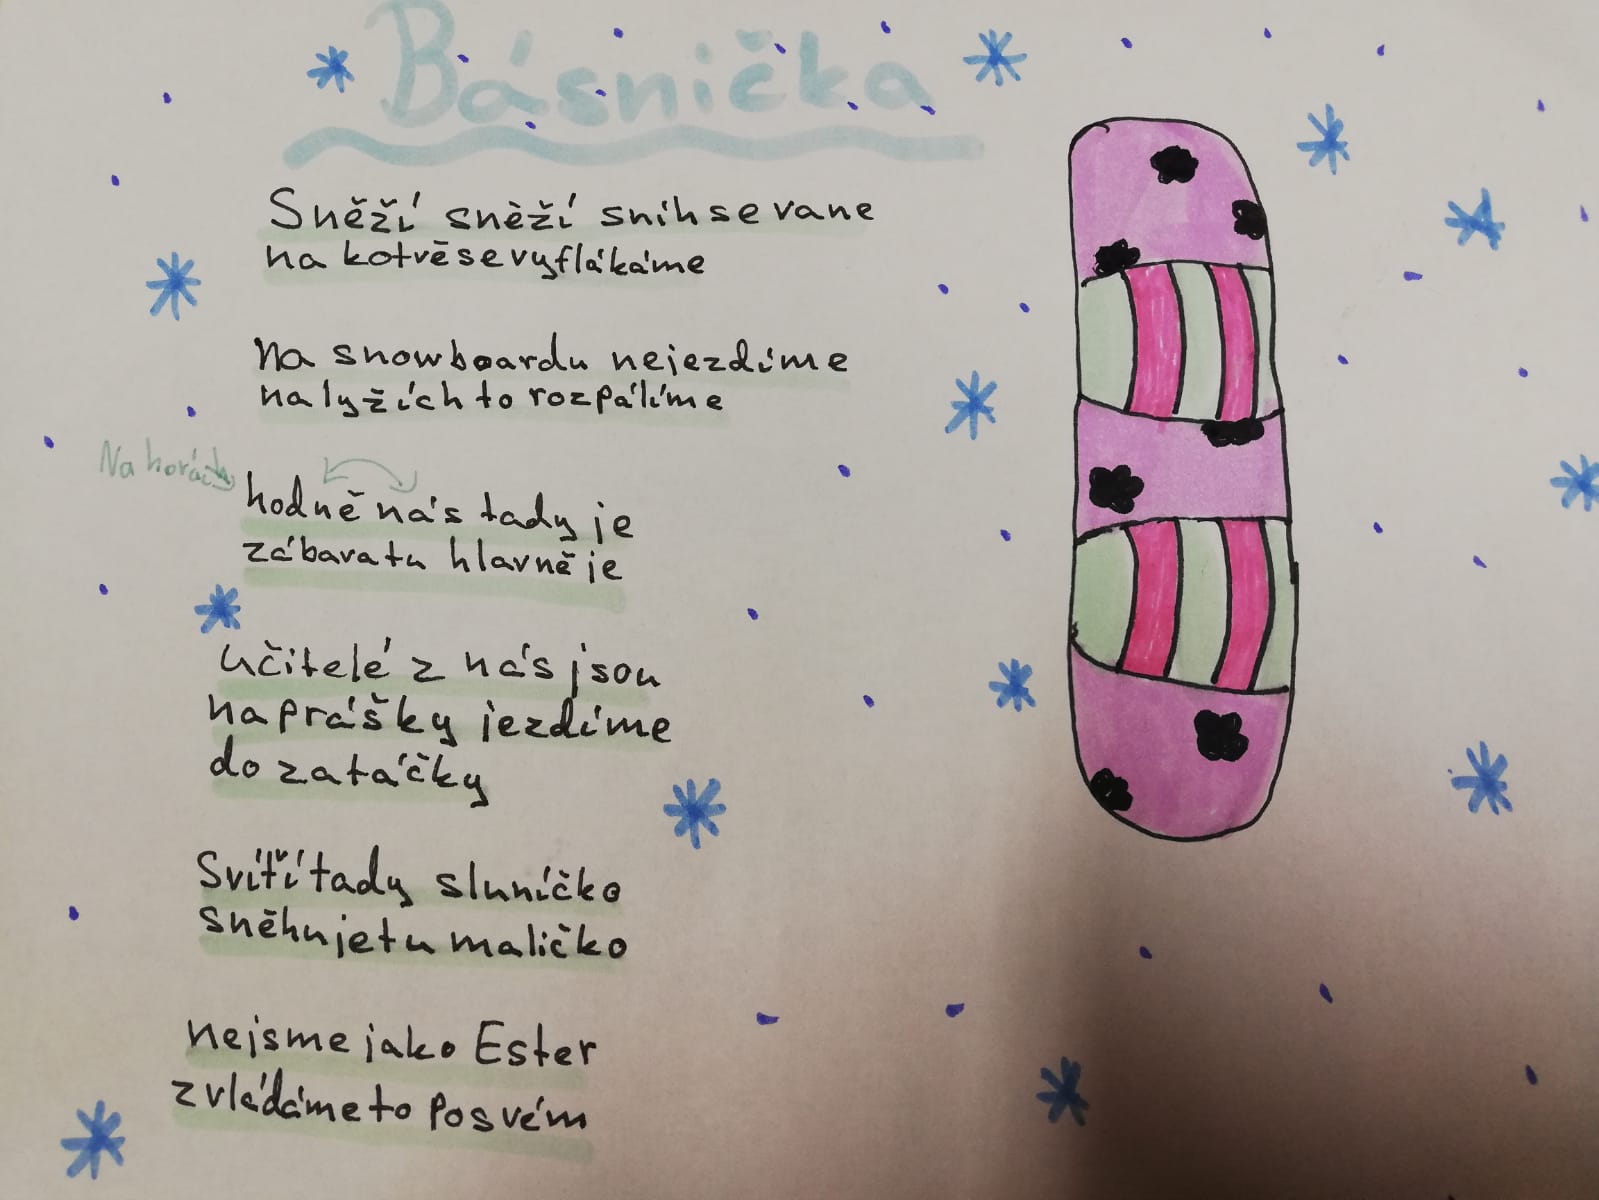 Básnička
Sněží sněží snih se vane
na kotvě se vyflákáme
Na snowboardu nejezdíme
na lyžích to rozpálíme
Na horách
hodně nás tady je
zábava tu hlavně je
učitelé z nás jsou
na prášky jezdíme
do zatáčky
Svítí tady sluníčko
sněhu je tu maličko
nejsme jako Ester
zvládáme to po svém